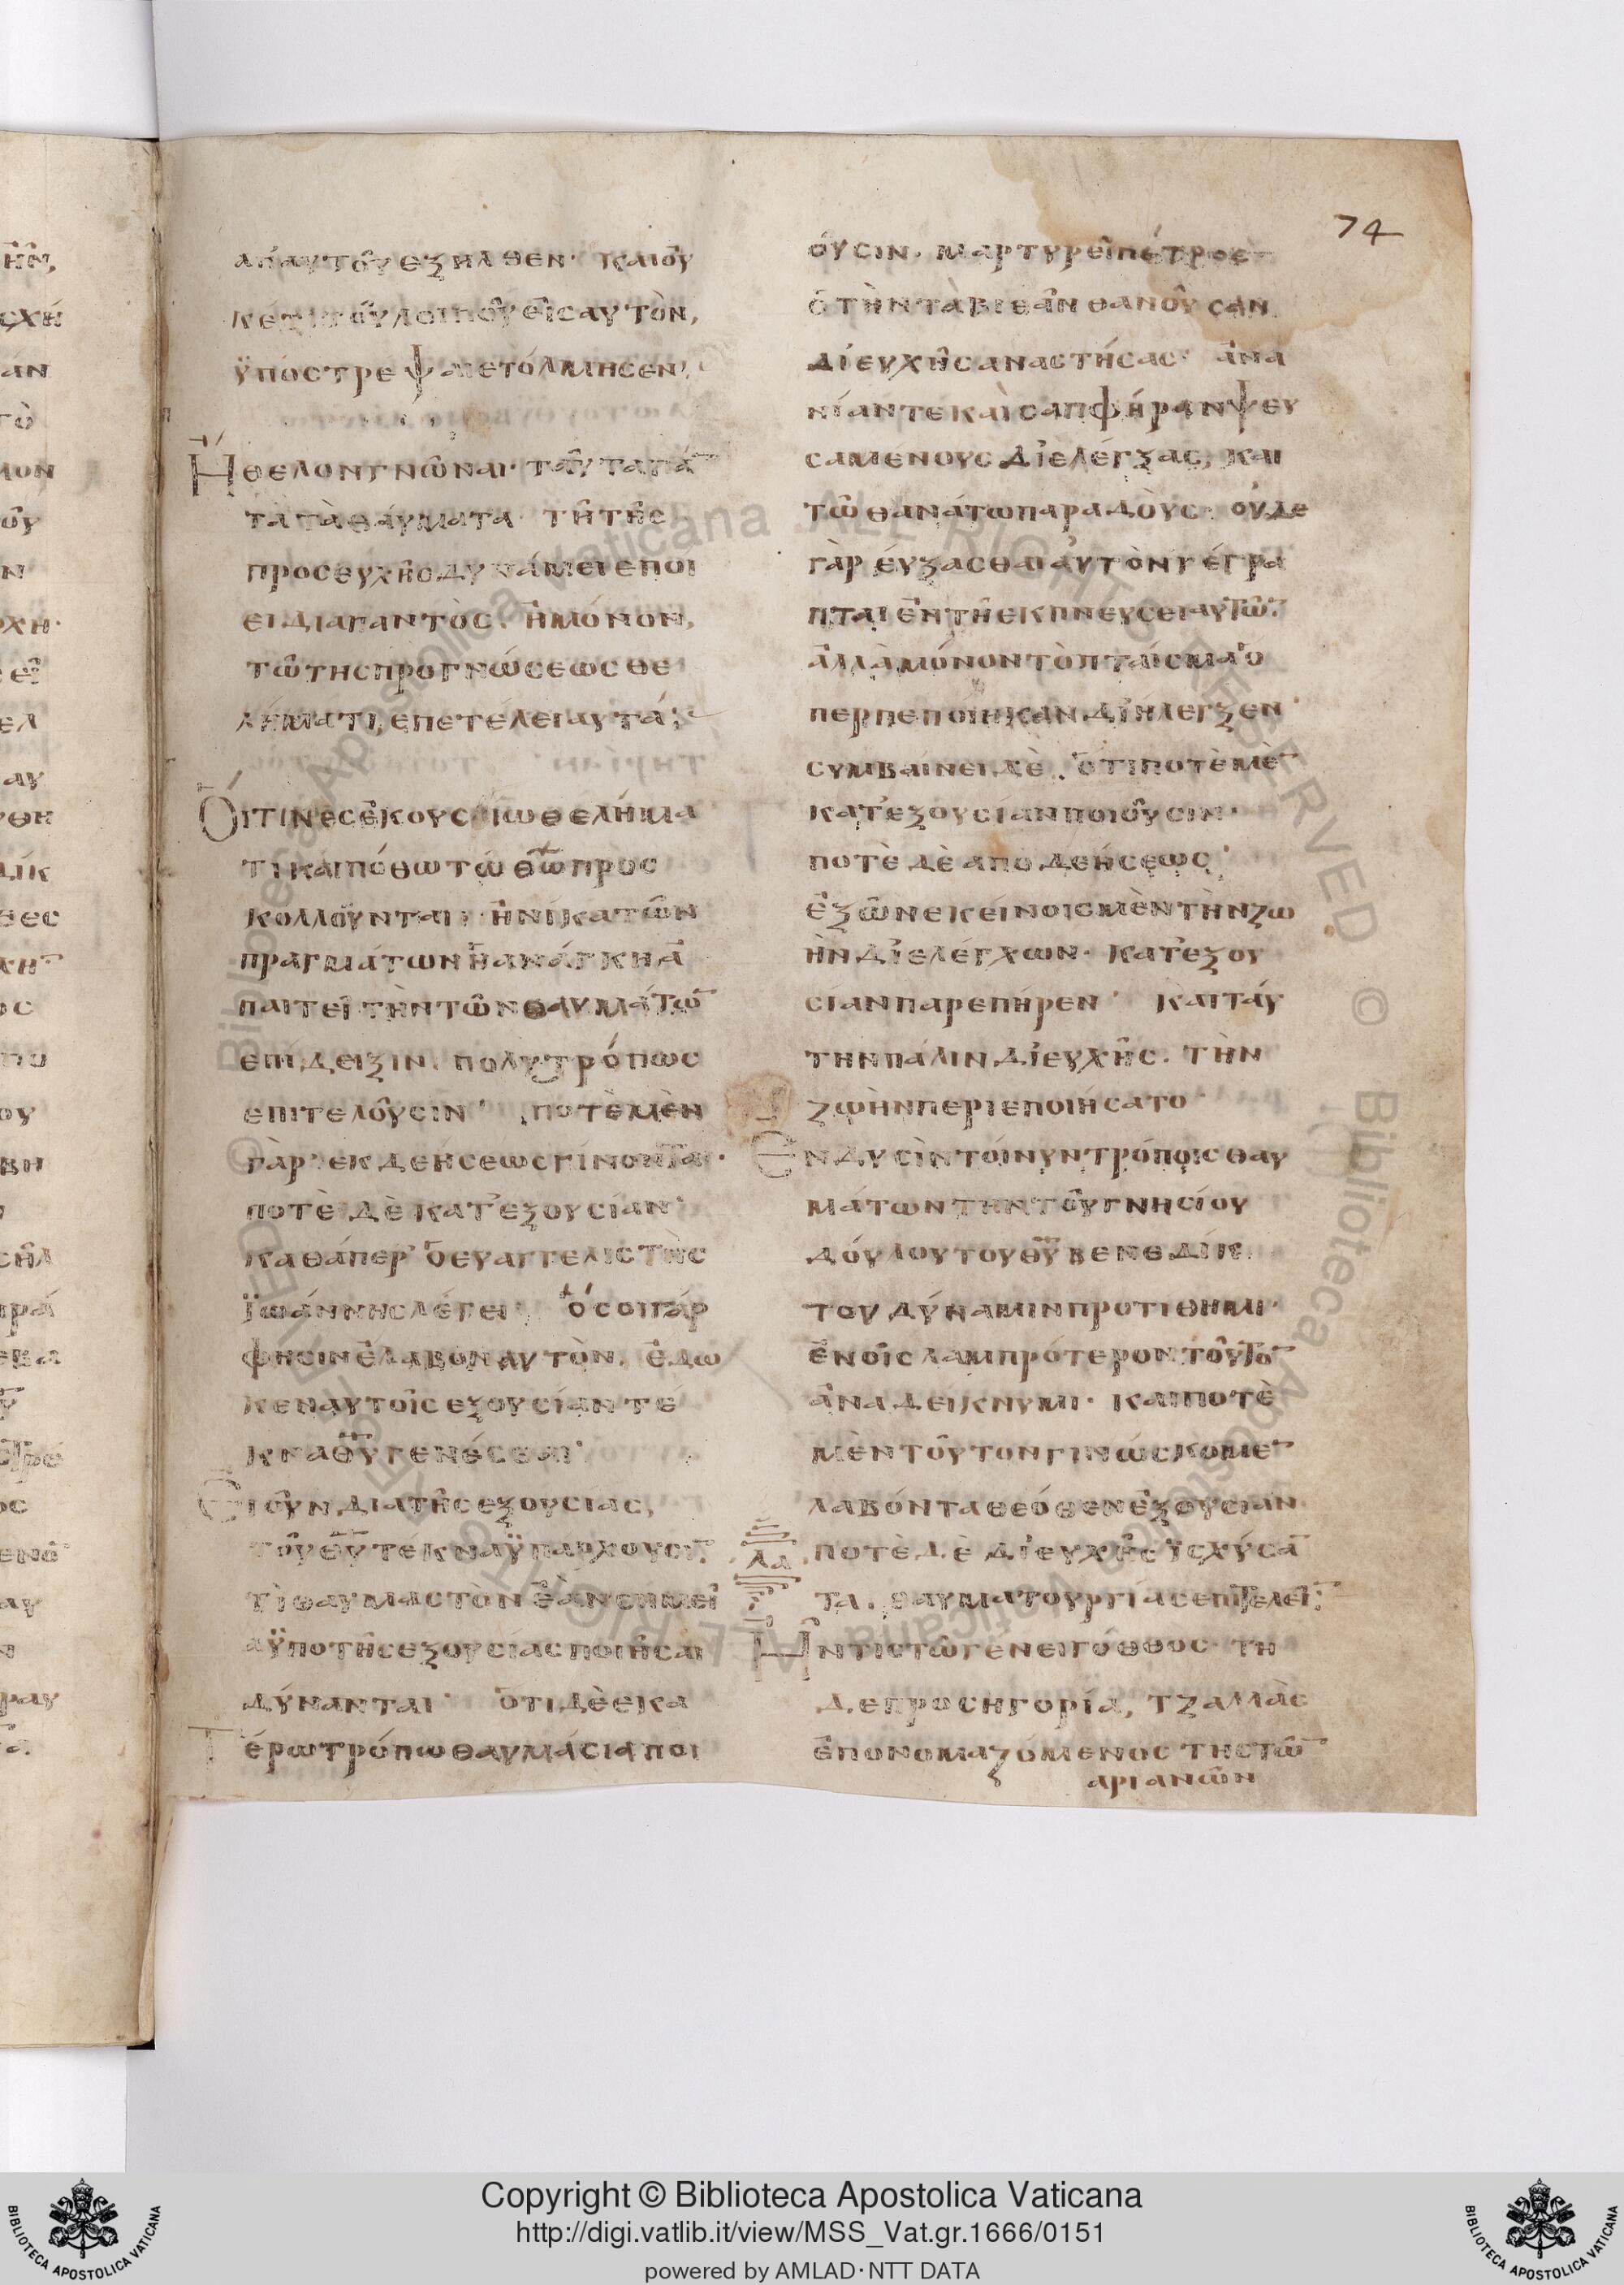 74
ἀπαυτοῦ ἐξῆλθεν· καὶ οὐ
κέτι τοῦ λοιποῦ εἰς αυτὸν,
ϋποστρέψαι ετόλμησεν·
Ἤθελον γνῶναι· ταῦτα πά̅
τα τὰ θαύματα· τῆ τῆς
προσευχῆς δυνάμει εποί
ει διαπαντὸς· ἢ μόνον,
τῶ της προγνώσεως θε
λήματι, επετέλει αυτά;
Οἵτινες ἑκουσίω θελήμα
τι και πόθω τῶ θ̅ω̅ προς
κολλοῦνται· ἡνίκα τῶν
πραγμάτων ἡ ανάγκη ἀ
παιτεῖ τὴν τῶν θαυμάτω̅
επίδειξιν. πολυτρόπως
επιτελοῦσιν· ποτὲ μὲν
γὰρ εκ δεήσεως γίνονται·
ποτὲ δὲ κατ' εξουσίαν·
καθάπερ ὁ ευαγγελιστὴς
ϊωάννης λέγει· ὅσοι γάρ
φησιν ἔλαβον αυτὸν, ἔδω
κεν αυτοῖς εξουσίαν τέ
κνα θ̅υ̅ γενέσθαι·
Ει οὖν διὰ τῆς εξουσιας,
τοῦ θ̅υ̅ τέκνα ϋπάρχουσι̅·
τὶ θαυμαστὸν ἐὰν σημεῖ
α ϋπὸ τῆς εξουσίας ποιῆσαι
δύνανται· ὅτι δὲ εκα
τέρω τρόπω θαυμάσια ποι
οῦσιν. μαρτυρεῖ πέτρος
ὁ τὴν ταβιθὰν θανοῦσαν
δι ευχῆς αναστήσας· ἀνα
νίαν τε καὶ σαπφήραν ψευ
σαμένους διελέγξας, και
τῶ θανάτω παραδοὺς· οὐδε
γὰρ εύξασθαι αὐτὸν γέγρα
πται ἐν τῆ εκπνεύσει αυτῶ̅·
ἀλλὰ μόνον τὸ πταίσμα ὅ
περ πεποιήκαν διήλεγξεν·
συμβαίνει δὲ ὅτι ποτὲ μὲ̅
κατ' εξουσίαν ποιοῦσιν·
ποτὲ δὲ απο δεήσεως·
ἐξ ὧν εκείνοις μὲν τὴν ζω
ὴν διελέγχων· κατ' εξου
σίαν παρεπήρεν· και ταύ
την πάλιν δι ευχῆς. τὴν
ζωὴν περιεποιήσατο·
Εν δυσὶν τοίνυν τρόποις θαυ
μάτων την τοῦ γνησίου
δούλου του θ̅υ̅ βενεδίκ
του δύναμιν προτίθημι·
ἐν οἷς λαμπρότερον τοῦτο̅
ἀναδείκνυμι· και ποτὲ
μὲν τοῦτον γινώσκομε̅
λαβόντα θεόθεν ἐξουσίαν·
ποτὲ δὲ δι ευχῆς ϊσχύσα̅
τα. θαυματουργίας επιτελεῖ̅;
λα
Ἦν τις τῶ γένει γόθθος· τη
δε προσηγορία, τζαλλὰς
ἐπονομαζόμενος της τῶ̅
αριανῶν
Copyright © Biblioteca Apostolica Vaticana
http://digi.vatlib.it/view/MSS_Vat.gr.1666/0151
powered by AMLAD·NTT DATA